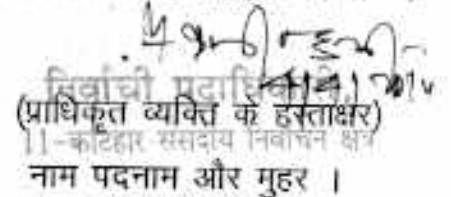 निर्वाची पदाधिकारी
(प्राधिकृत व्यक्ति के हस्ताक्षर)
11-कटिहार संसदीय निर्वाचन क्षेत्र
नाम पदनाम और मुहर ।